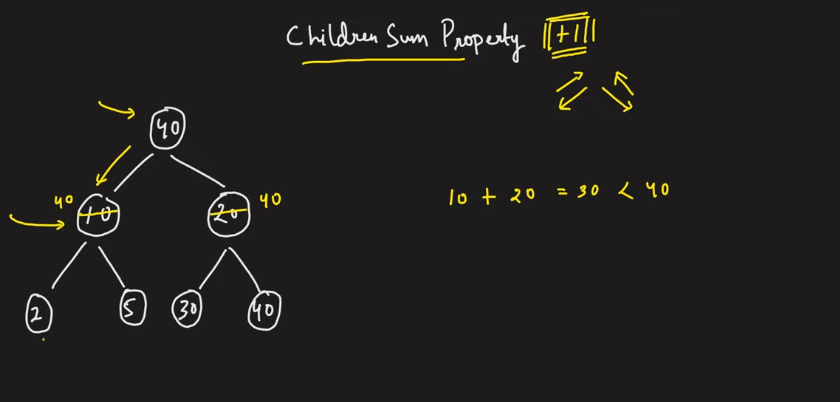 Children Sum Property +1
40
40 10 20 40
10 + 20 = 30 < 40
2 5 30 40